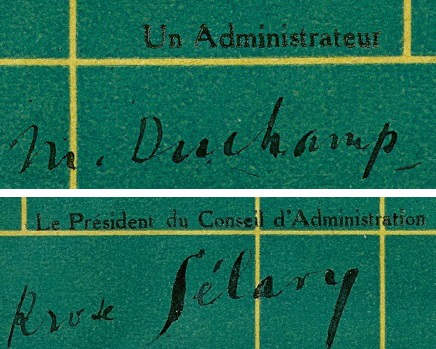 Un Administrateur
M. Duchamp
Le Président du Conseil d'Administration
Rrose Sélavy